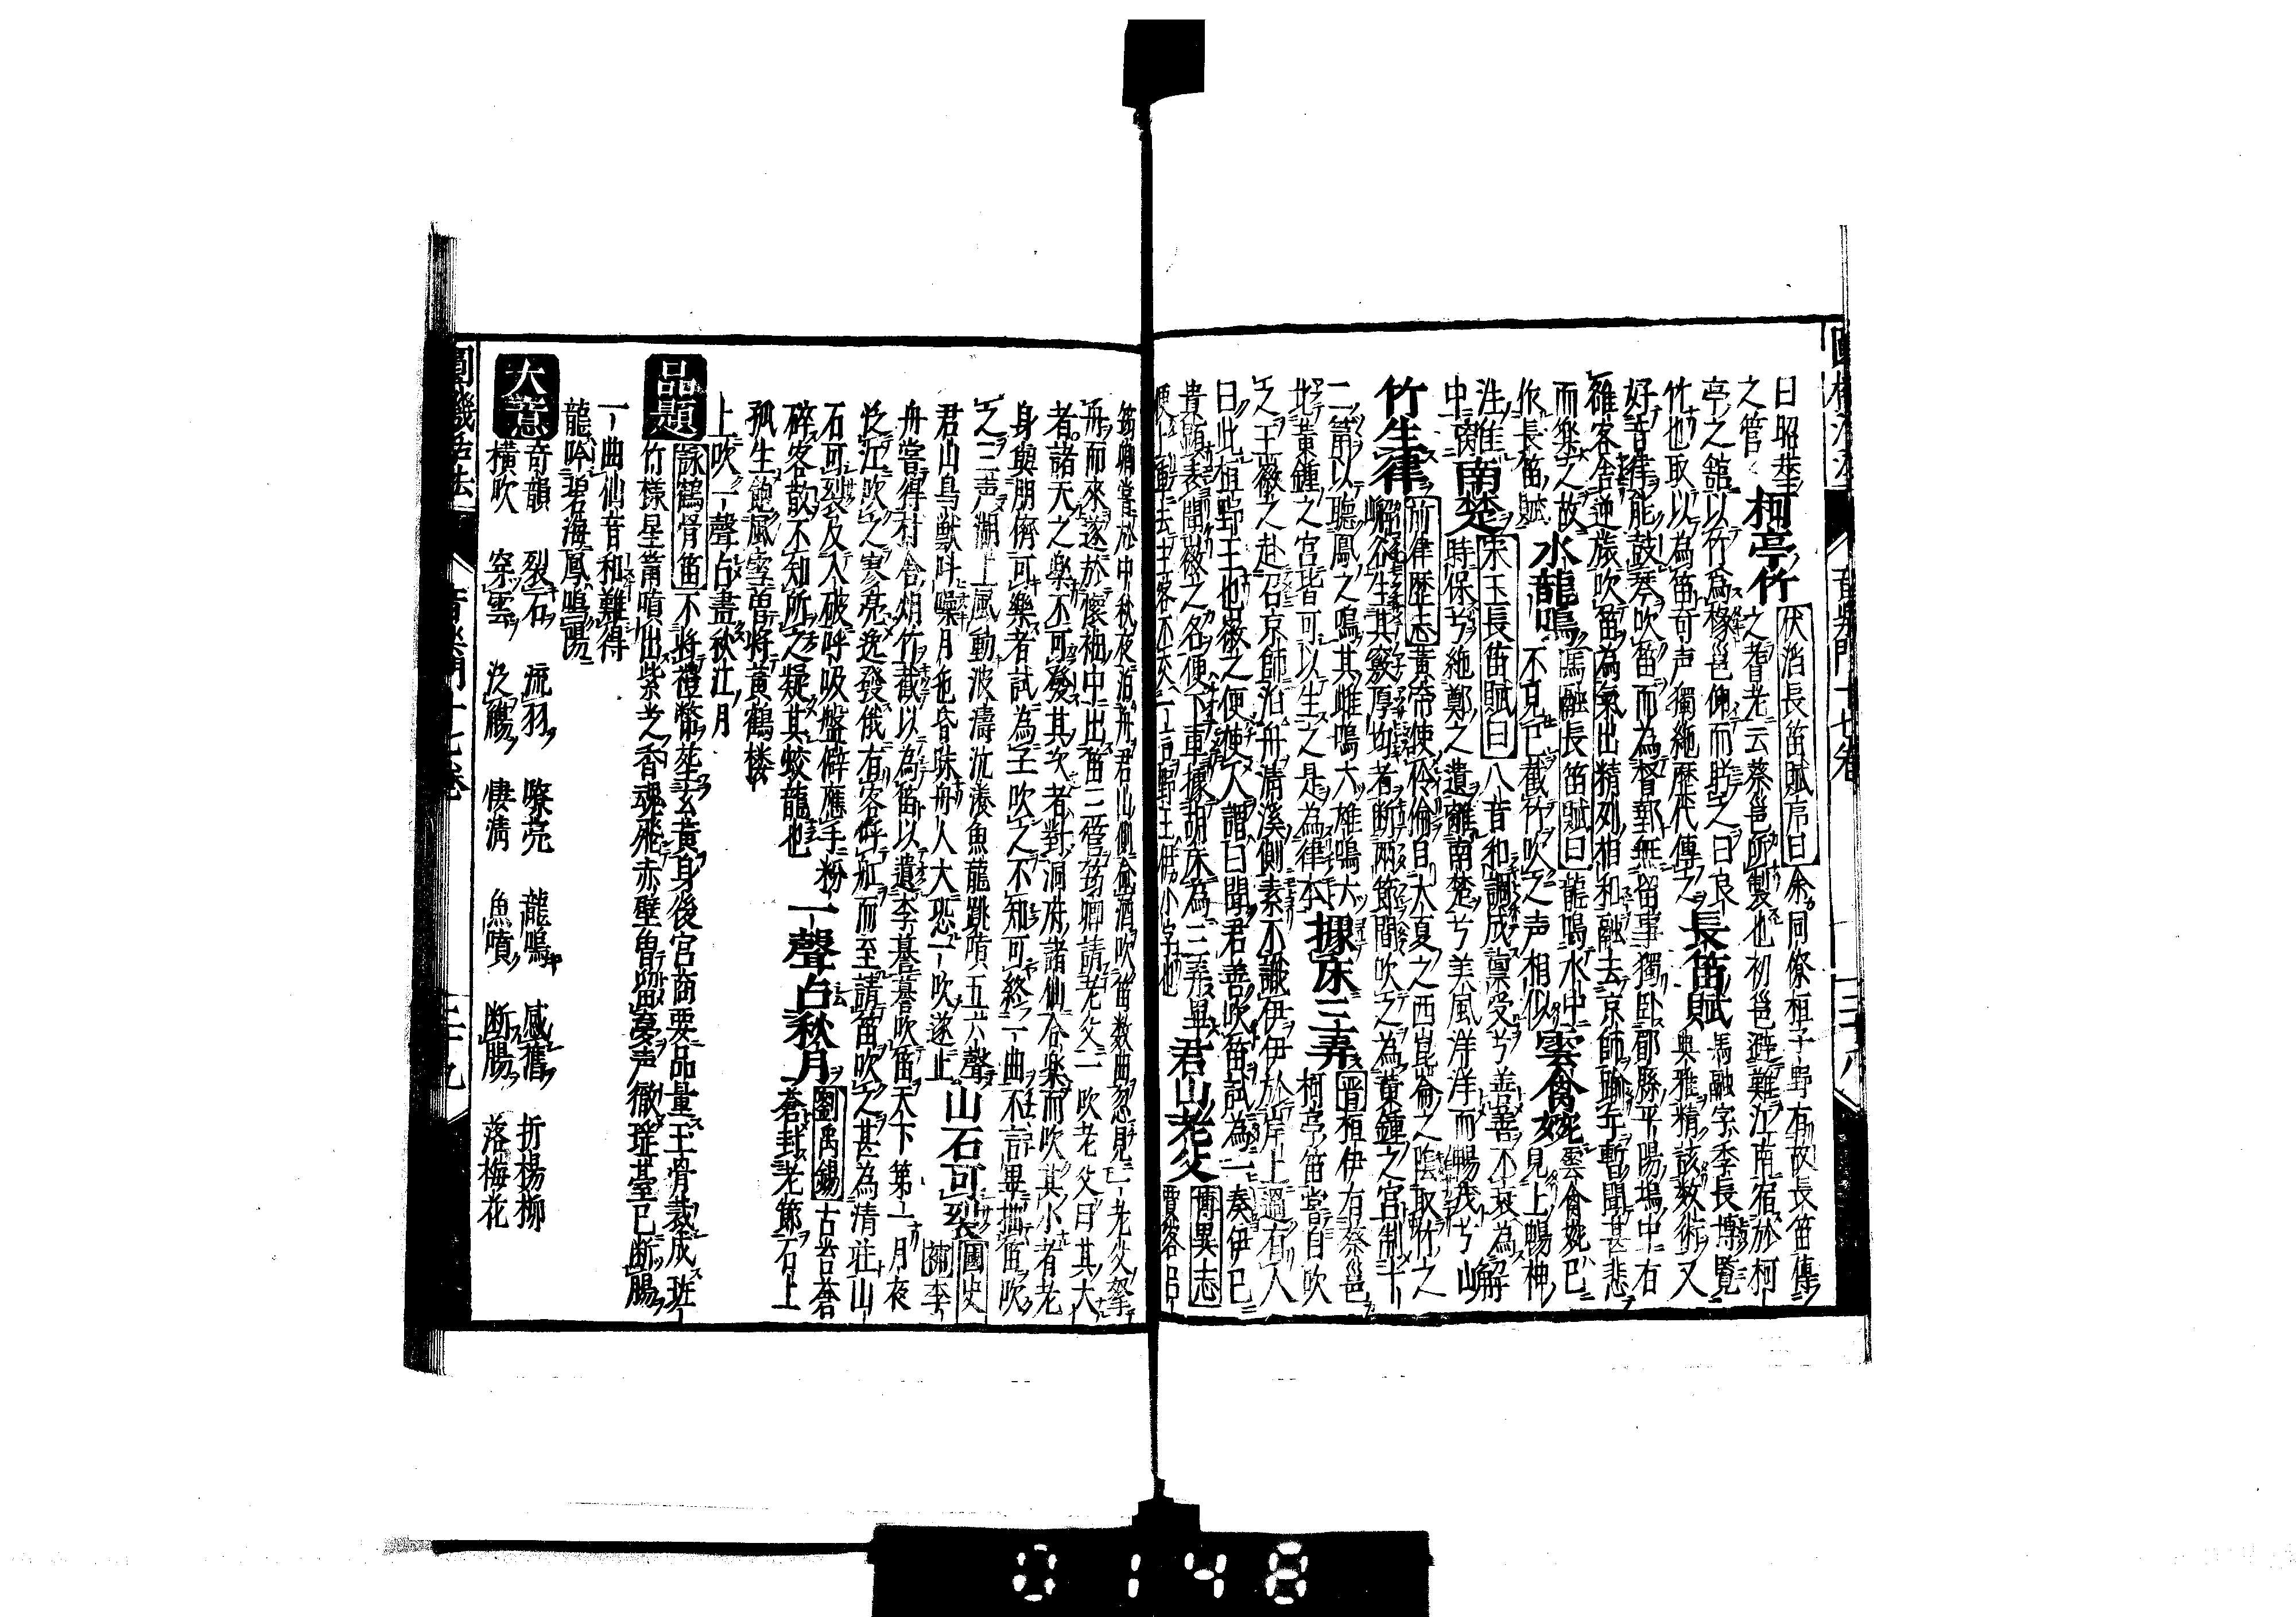 曰昭華 柯亭竹 伏滔長笛賦序曰余同僚桓子野有故長笛傳
之管 之耆老云蔡邕所製也初邕避難江南宿於柯
亭之館以竹為椽邕仰而眄之曰良 長笛賦 馬融字季長博覧
竹也取以為笛奇声獨絶歴代傳之 典雅精該数術又
好音律能鼓琴吹笛而為督郵無留事獨卧郿縣平陽塢中有
雒客舎逆旅吹笛為氣出精列相和融去京師踰年暫聞甚悲
而樂之故 水龍鳴 馬融長笛賦曰龍鳴水中 雲禽婉 雲禽婉已
作長笛賦 不見已截竹吹之声相似 見上暢神
注惟 南楚 宋玉長笛賦曰八音和調成禀受兮善善不衰為解
中商 時保兮絶鄭之遺離南楚兮美風洋洋而暢茂兮山
竹生律 前律歴志黄帝使伶倫自大夏之西崑崙之陰取竹之
嶰谷生其竅厚均者断両節間吹之為黄鍾之宮制十
二筩以聴鳳之鳴其雌鳴六雄鳴六 據床三弄 晋桓伊有蔡邕
比黄鍾之宮皆可以生之是為律本 柯亭笛嘗自吹
之王徽之赴召京師泊舟淸溪側素不識伊伊於岸上過有人
曰此桓野王也徽之便使人謂曰聞君善吹笛試為一奏伊已
貴顕素聞徽之名便下車據胡床為三弄畢 君山老父 博異志
便上車去主客不交一言野王伊小字也 賈客呂
筠卿嘗於中秋夜泊舟君山側命酒吹笛数曲忽見一老父拏
舟而來遂於懐袖中出笛三管筠卿請老父一吹老父曰其大
者諸天之樂不可發其次者對洞府諸仙合樂而吹其小者老
身與朋儕可樂者試為一吹之不知可終一曲不言畢抽笛吹
之三声湖上風動波濤沆瀁魚龍跳噴五六聲 山石可裂 國史
君山鳥獣叫噪月色昏昧舟人大恐一吹遂止 補李
舟嘗得村舎烟竹截以為笛以遺李謩謩吹笛天下第一月夜
泛江吹之寥亮逸發俄有客呼舡而至請笛吹之甚為清壮山
石可裂及入破呼吸盤擗應手粉 一聲占秋月 劉禹錫古苔蒼
碎客散不知所之疑其蛟龍也 蒼封老節石上
孤生飽風雪曽將黄鶴楼
上吹一聲占盡秋江月
品題 詠鶴骨笛不將禮幣茔玄黄身後宮商要品量玉骨裁成班
竹様星筩噴出紫芝香魂飛赤壁曽留夢声徹瑶䑓已断腸
一曲仙音和難得
龍吟碧海鳳鳴陽
大意 奇韻 裂石 流羽 嘹亮 龍鳴 感舊 折楊柳
横吹 穿雲 泛觴 悽清 魚噴 断腸 落梅花
圓機活法 音樂門十七巻 三十八
圓機活法 音樂門十七巻 三十九
0148